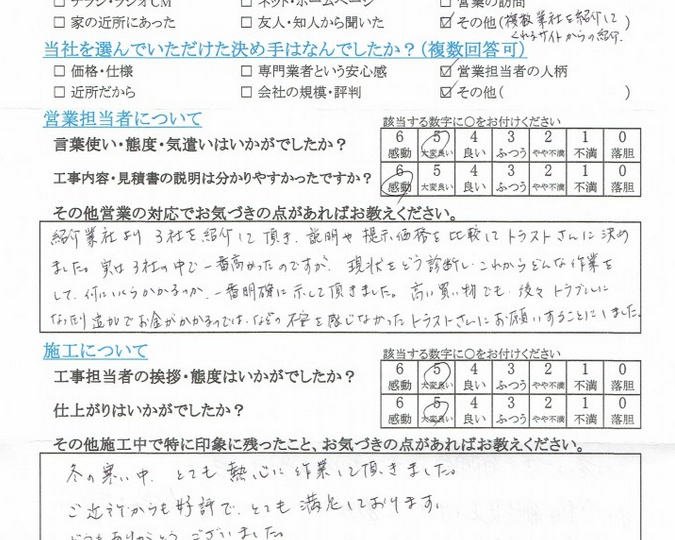 □ チラシ・ラジオCM □ ネット・ホームページ □ 営業の訪問
□ 家の近所にあった □ 友人・知人から聞いた ☑ その他(複数業社を紹介して
くれるサイトからの紹介.
当社を選んでいただけた決め手はなんでしたか？(複数回答可)
□ 価格・仕様 □ 専門業者という安心感 ☑ 営業担当者の人柄
□ 近所だから □ 会社の規模・評判 ☑ その他( )
営業担当者について 該当する数字に○をお付けください
言葉使い・態度・気遣いはいかがでしたか？ 6 感動 5 大変良い 4 良い 3 ふつう 2 やや不満 1 不満 0 落胆
工事内容・見積書の説明は分かりやすかったですか？ 6 感動 5 大変良い 4 良い 3 ふつう 2 やや不満 1 不満 0 落胆
その他営業の対応でお気づきの点があればお教えください。
紹介業社より 3社を紹介して頂き、説明や提示価格を比較してトラストさんに決め
ました。実は3社の中で一番高かったのですが、現状をどう診断し、これからどんな作業を
して、何にいくらかかるのか、一番明確に示して頂きました。高い買い物でも、後々トラブルに
なったり追加でお金がかかるのでは、などの不安を感じなかったトラストさんにお願いすることにしました。
施工について 該当する数字に○をお付けください
工事担当者の挨拶・態度はいかがでしたか？ 6 感動 5 大変良い 4 良い 3 ふつう 2 やや不満 1 不満 0 落胆
仕上がりはいかがでしたか？ 6 感動 5 大変良い 4 良い 3 ふつう 2 やや不満 1 不満 0 落胆
その他施工中で特に印象に残ったこと、お気づきの点があればお教えください。
冬の寒い中、とても熱心に作業して頂きました。
ご近所からも好評で、とても満足しております。
どうもありがとうございました。